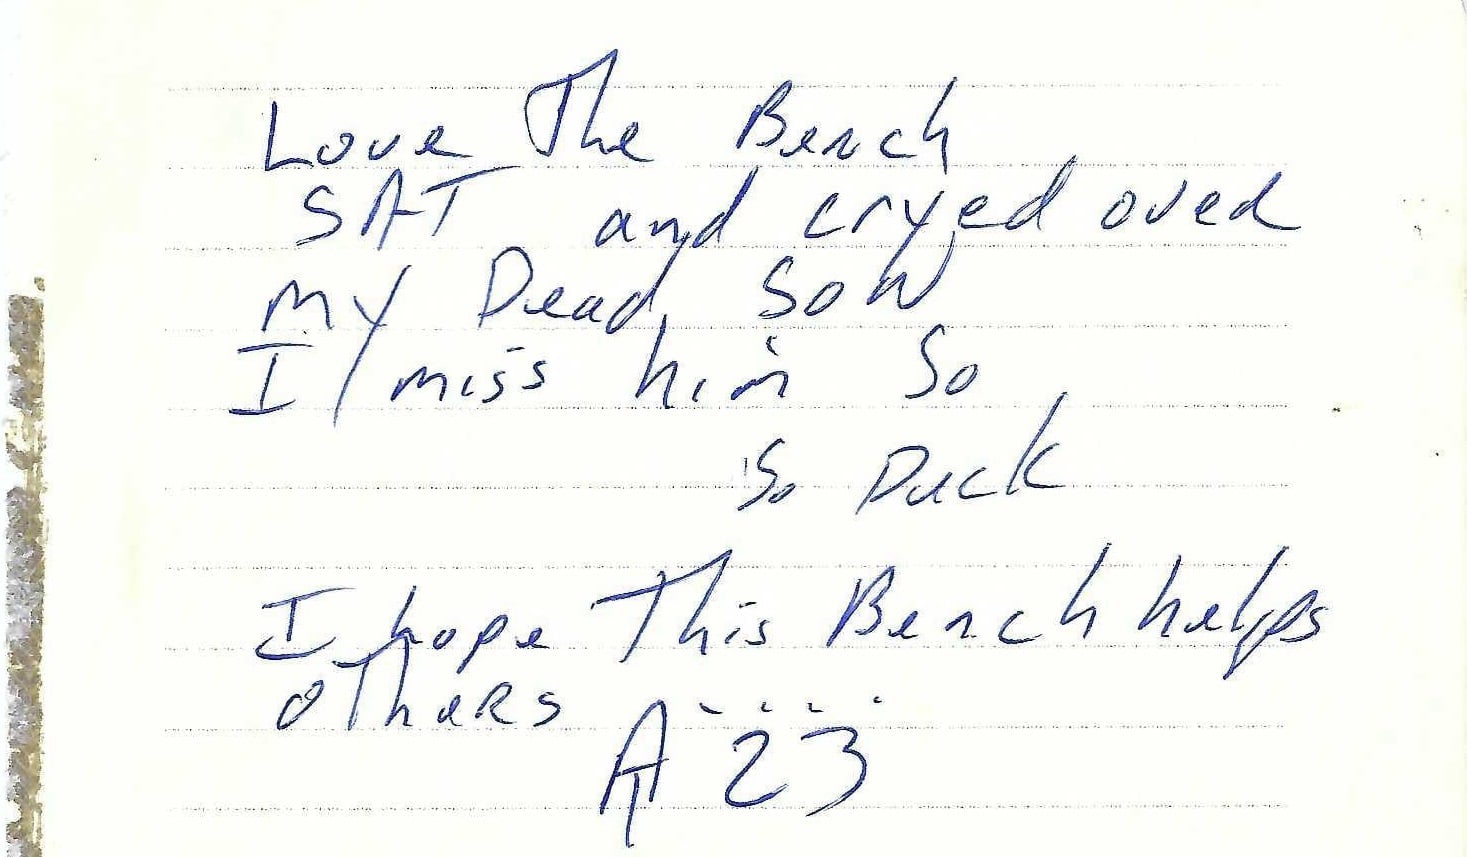 Love The Bench
SAT and cryed over
My Dead Son
I miss him So
So Duck
I hope This Bench helps
oThers ....
A 23